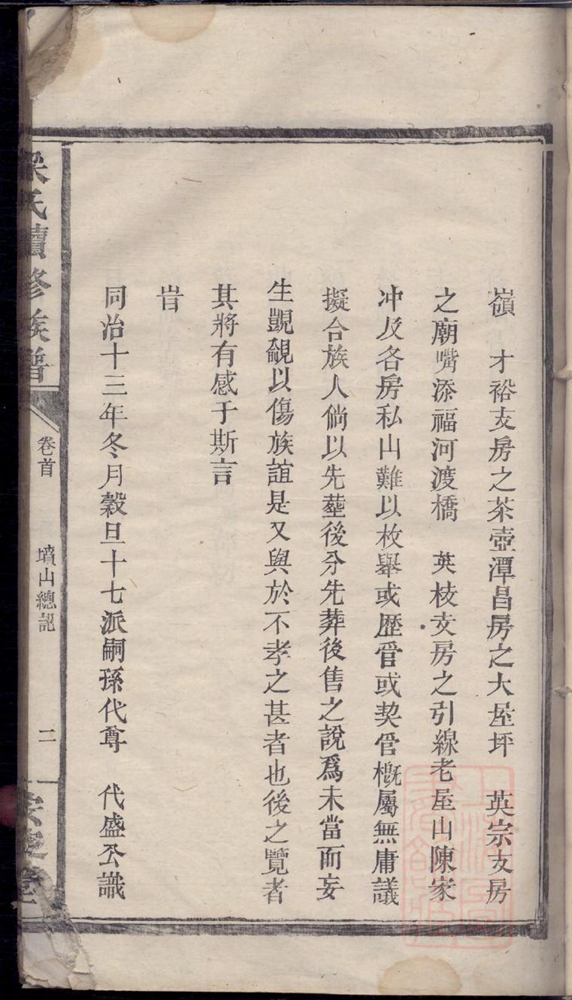 嶺　才裕支房之茶壺潭昌房之大屋坪　英宗支房
之廟嘴添福河渡橋　英枝支房之引線老屋山陳家
冲及各房私山難以枚舉或歷管或契管槪屬無庸議
擬合族人倘以先塟後分先葬後售之說爲未當而妄
生覬覦以傷族誼是又與於不孝之甚者也後之覽者
其將有感于斯言
旹
同治十三年冬月穀旦十七派嗣孫代尊　代盛仝識
氏續修族譜
卷首
墳山總記
二